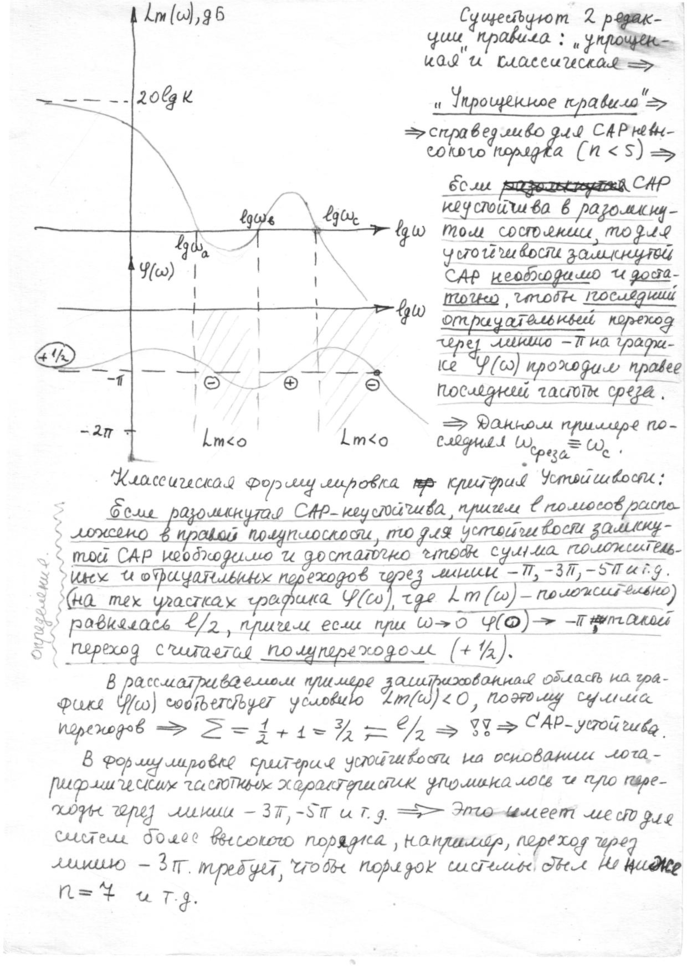 Lm(ω), дб
20lgK
lgωa
lgωв
lgωc
lgω
φ(ω)
lgω
+1/2
-π
⊖
⊕
⊖
-2π
Lm<0
Lm<0
Существуют 2 редак-
ции правила: „упрощен-
ная" и классическая ⇒
„Упрощенное правило" ⇒
⇒ справедливо для САР невы-
сокого порядка (n < 5) ⇒
Если САР
неустойчива в разомкну-
том состоянии, то для
устойчивости замкнутой
САР необходимо и доста-
точно, чтобы последний
отрицательный переход
через линию -π на графи-
ке φ(ω) проходил правее
последней частоты среза.
⇒ Данном примере по-
следняя ωсреза ≡ ωc.
Классическая формулировка критерия Устойчивости:
Определение.
Если разомкнутая САР-неустойчива, причем l полюсов распо-
ложено в правой полуплоскости, то для устойчивости замкну-
той САР необходимо и достаточно чтобы сумма положитель-
ных и отрицательных переходов через линии -π, -3π, -5π и т.д.
(на тех участках графика φ(ω), где Lm(ω) - положительно)
равнялась l/2, причем если при ω→0 φ(0) → -π такой
переход считается полупереходом (+1/2).
В рассматриваемом примере заштрихованная область на гра-
фике φ(ω) соответствует условию Lm(ω)<0, поэтому сумма
переходов ⇒ Σ = 1/2 + 1 = 3/2 = l/2 ⇒ !! ⇒ САР-устойчива.
В формулировке критерия устойчивости на основании лога-
рифмических частотных характеристик упоминалось и про пере-
ходы через линии -3π, -5π и т.д. ⇒ Это имеет место для
систем более высокого порядка, например, переход через
линию -3π. требует, чтобы порядок системы был не ниже
n = 7 и т.д.